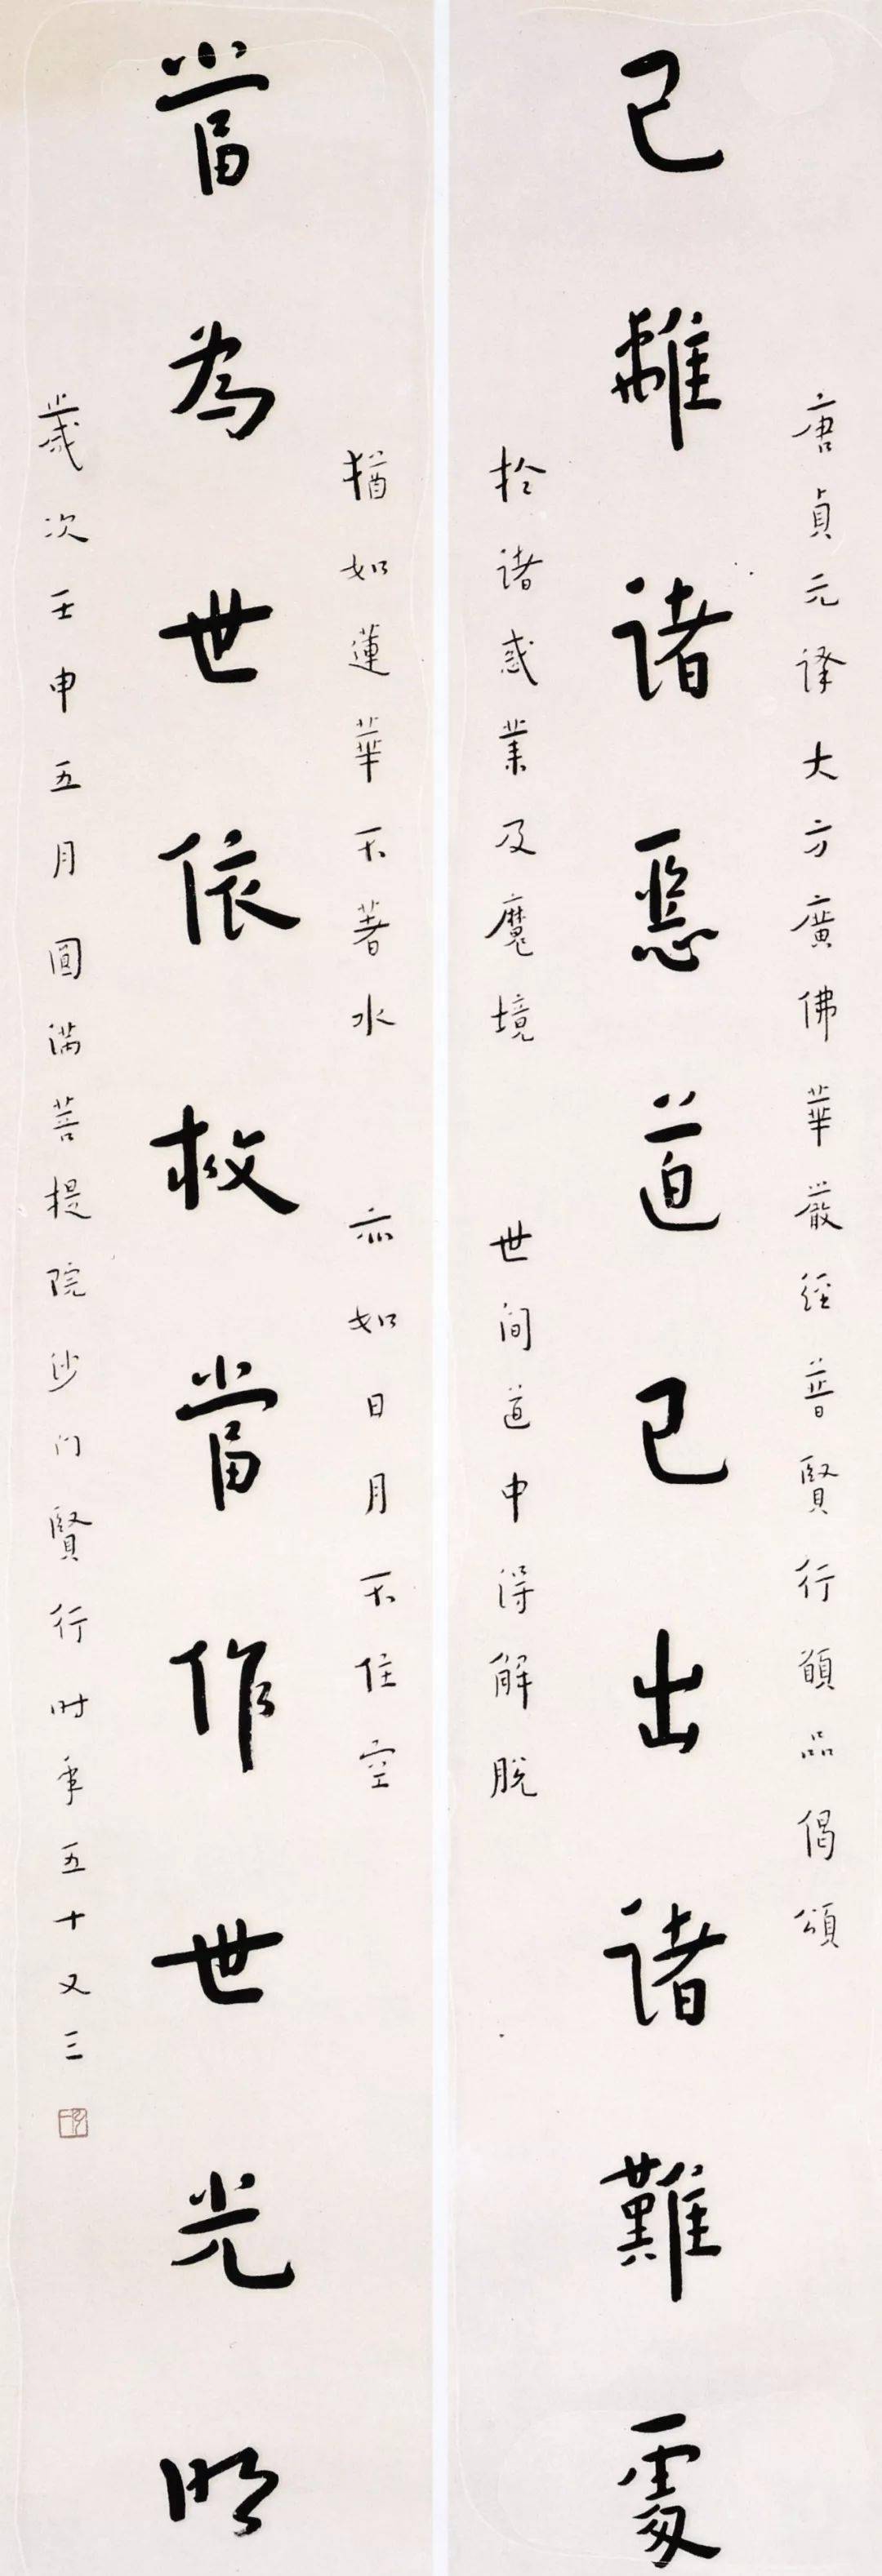 唐貞元譯大方廣佛華嚴經普賢行願品偈頌
已離諸惡道已出諸難處
於諸惑業及魔境 世間道中得解脫
猶如蓮華不著水 亦如日月不住空
當為世依救當作世光明
歲次壬申五月圓滿菩提院沙門賢行時年五十又三